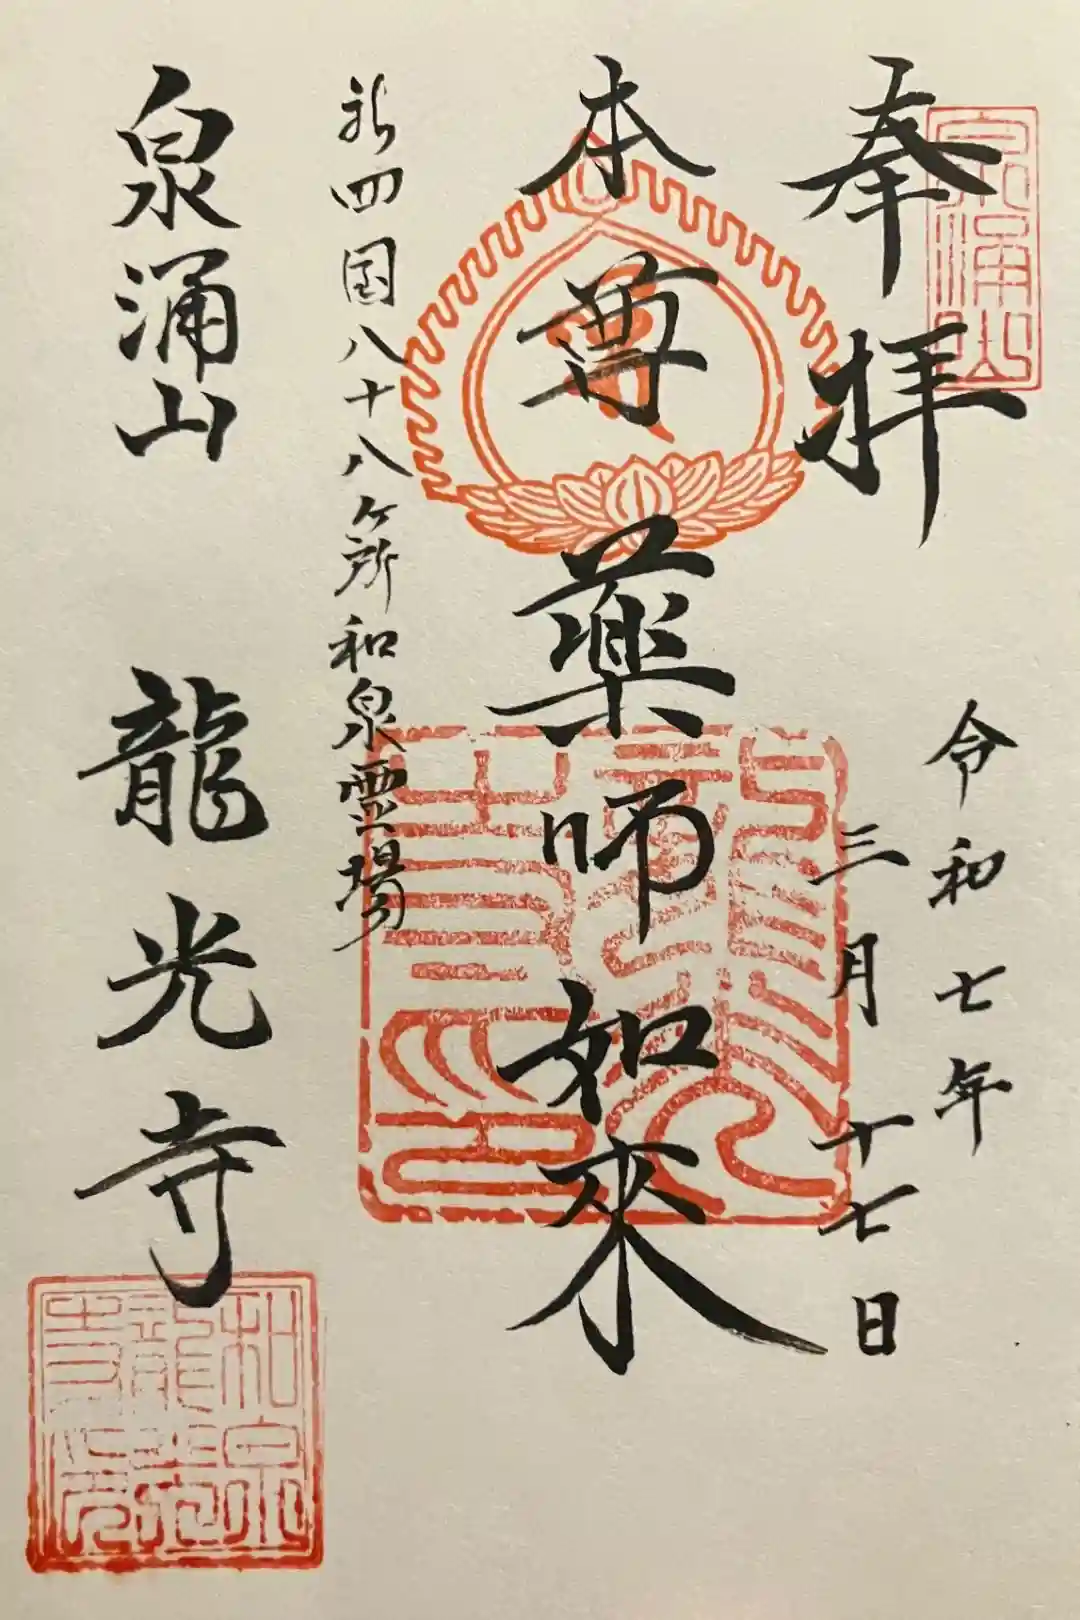 奉拝
泉涌山
令和七年
三月十七日
本尊薬師如来
新四国八十八ヶ所和泉霊場
泉涌山 龍光寺